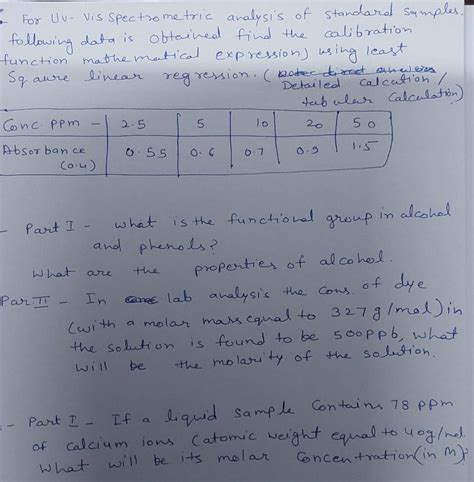 For Uv- Vis Spectrometric analysis of standard samples.
following data is obtained find the calibration
function mathematical expression) using least
Sqaure linear regression. (
Detailed Calcution /
tabular Calculation)
Conc. ppm - 2.5 5 10 20 50
Absorbance 0.55 0.6 0.7 0.9 1.5
(o.u)
- Part I - what is the functional group in alcohol
and phenols?
What are the properties of alcohol.
Par II - In lab analysis the cons. of dye
(with a molar mass equal to 327 g/mol) in
the solution is found to be 500 ppb, what
will be the molarity of the solution.
:- Part I - If a liquid sample Contains 78 ppm
of calcium ions (atomic weight equal to 40g/mol
What will be its molar Concentration (in M):